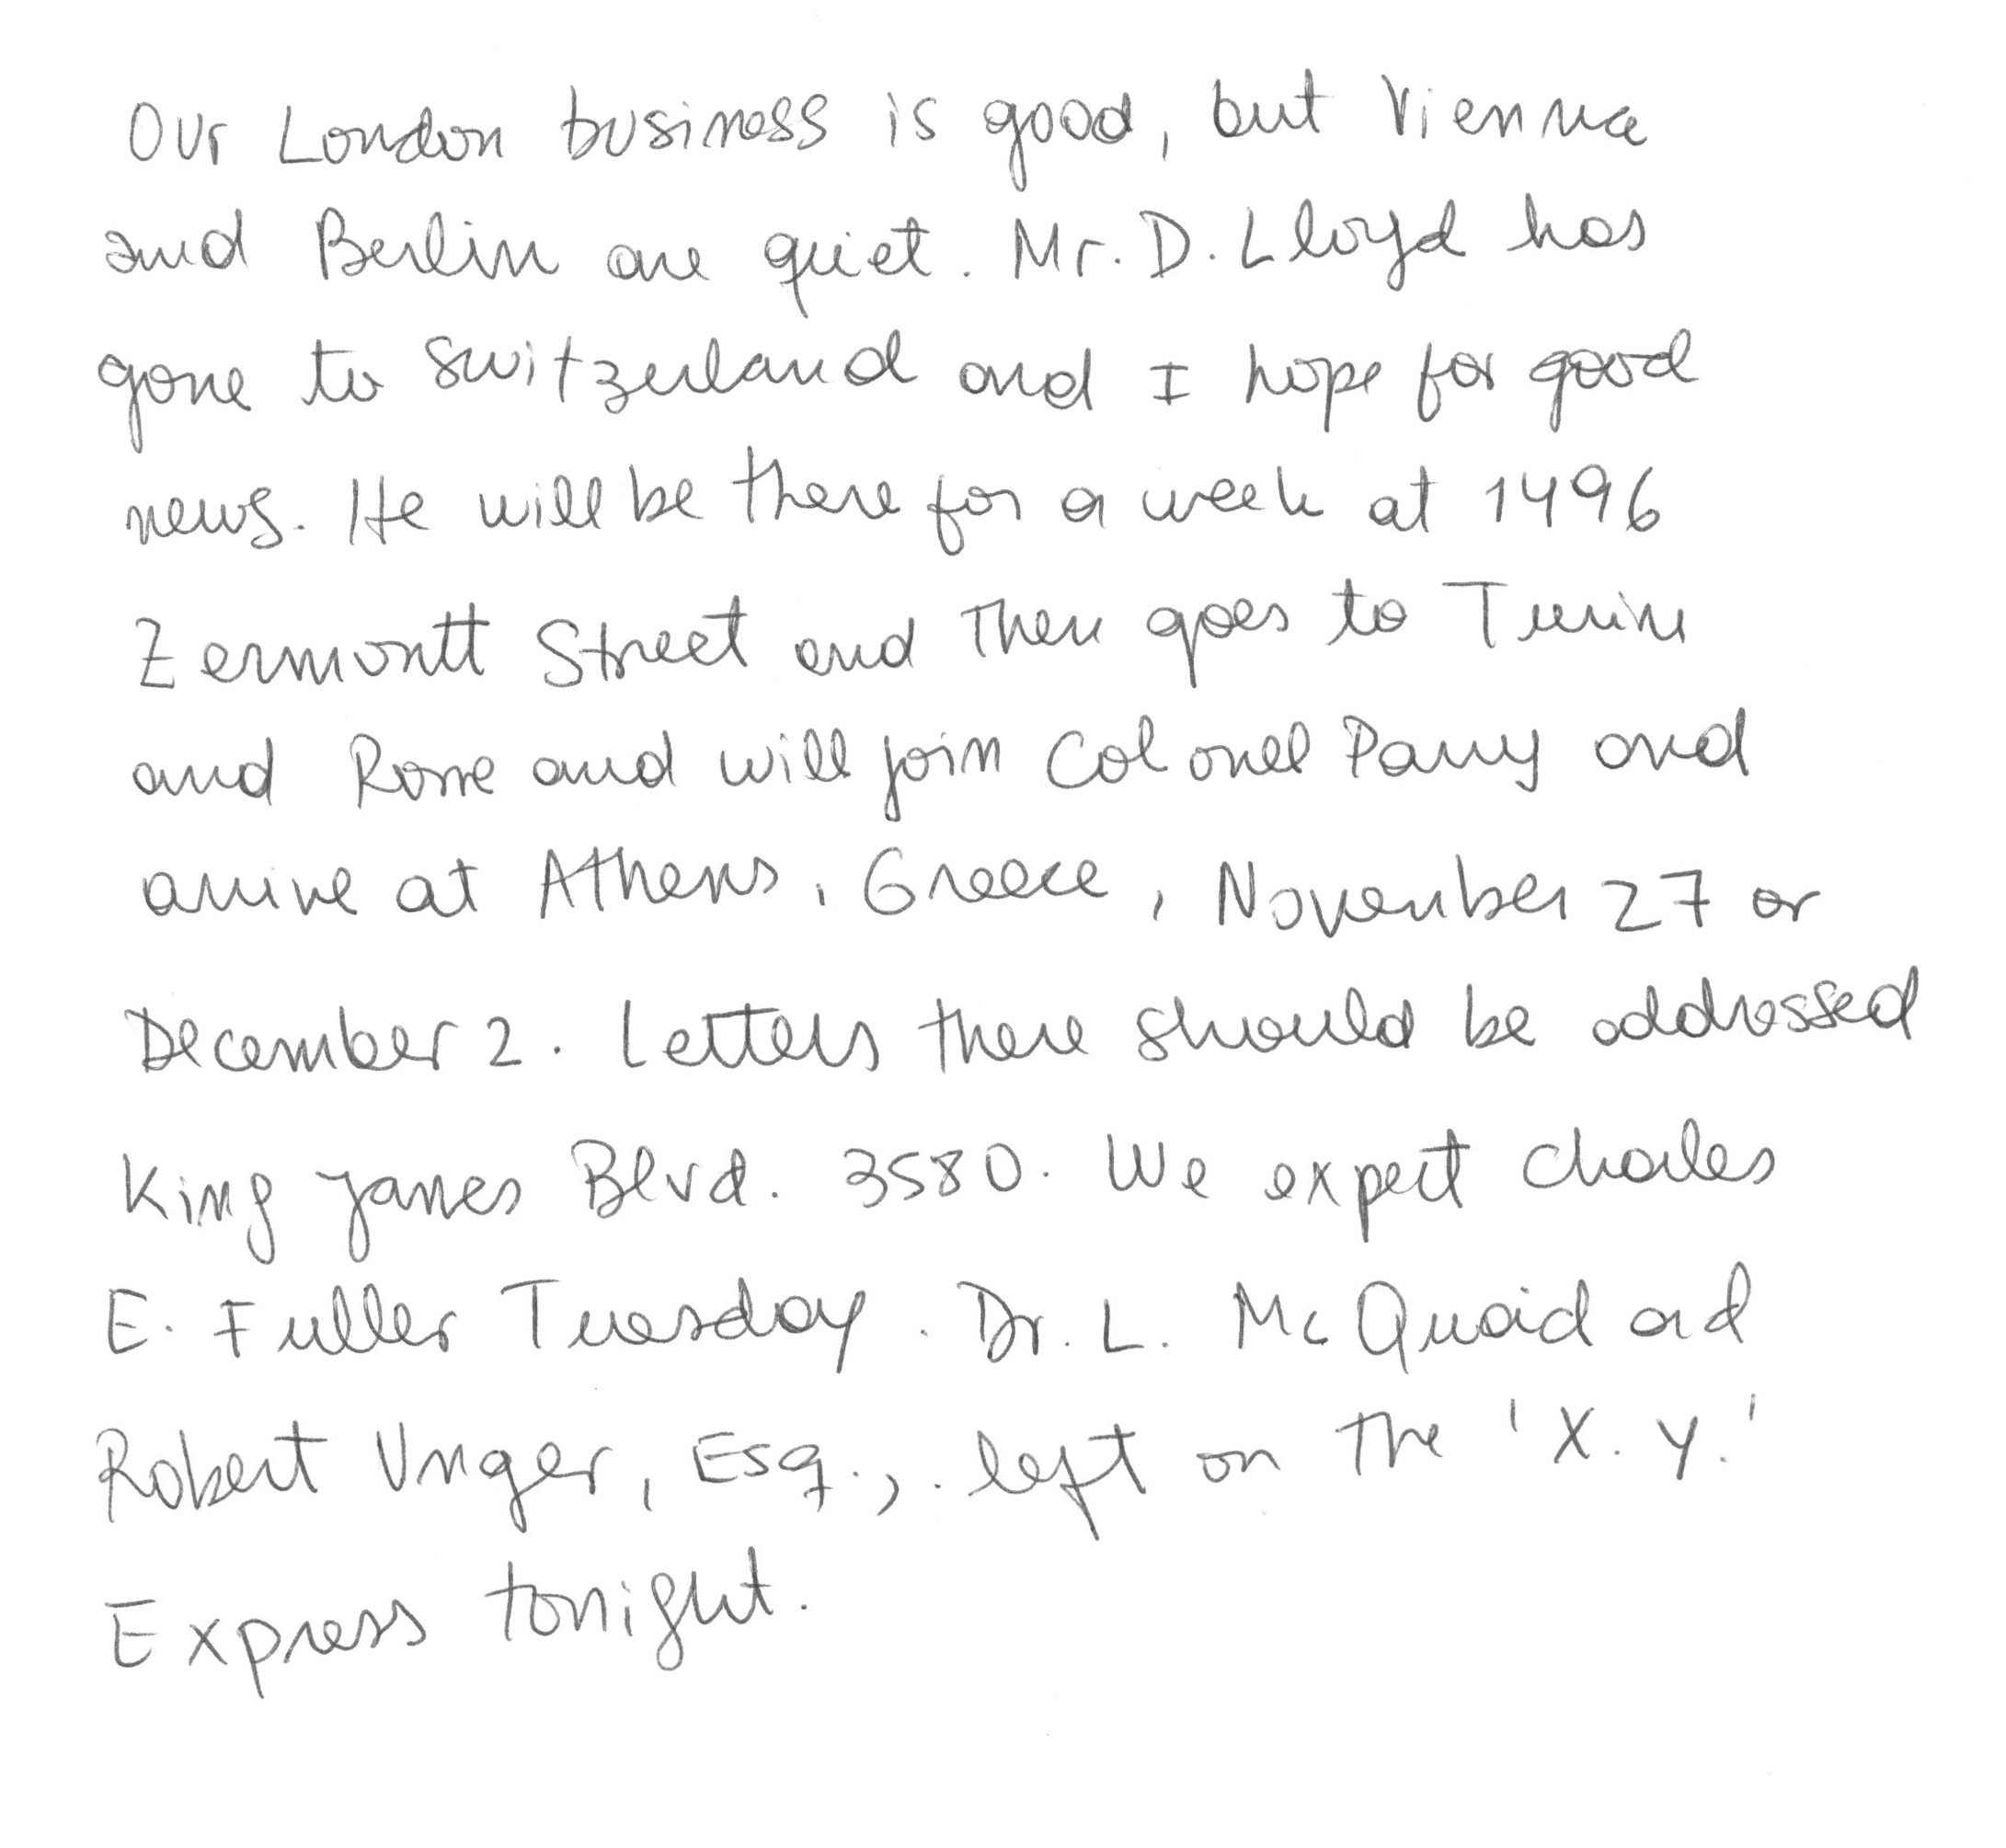 Our London business is good, but Vienna
and Berlin are quiet. Mr. D. Lloyd has
gone to Switzerland and I hope for good
news. He will be there for a week at 1496
Zermontt Street and then goes to Turin
and Rome and will join Colonel Parry and
arrive at Athens, Greece, November 27 or
December 2. Letters there should be addressed
King James Blvd. 3580. We expect Charles
E. Fuller Tuesday. Dr. L. McQuaid ad
Robert Unger, Esq., left on the 'X. Y.'
Express tonight.